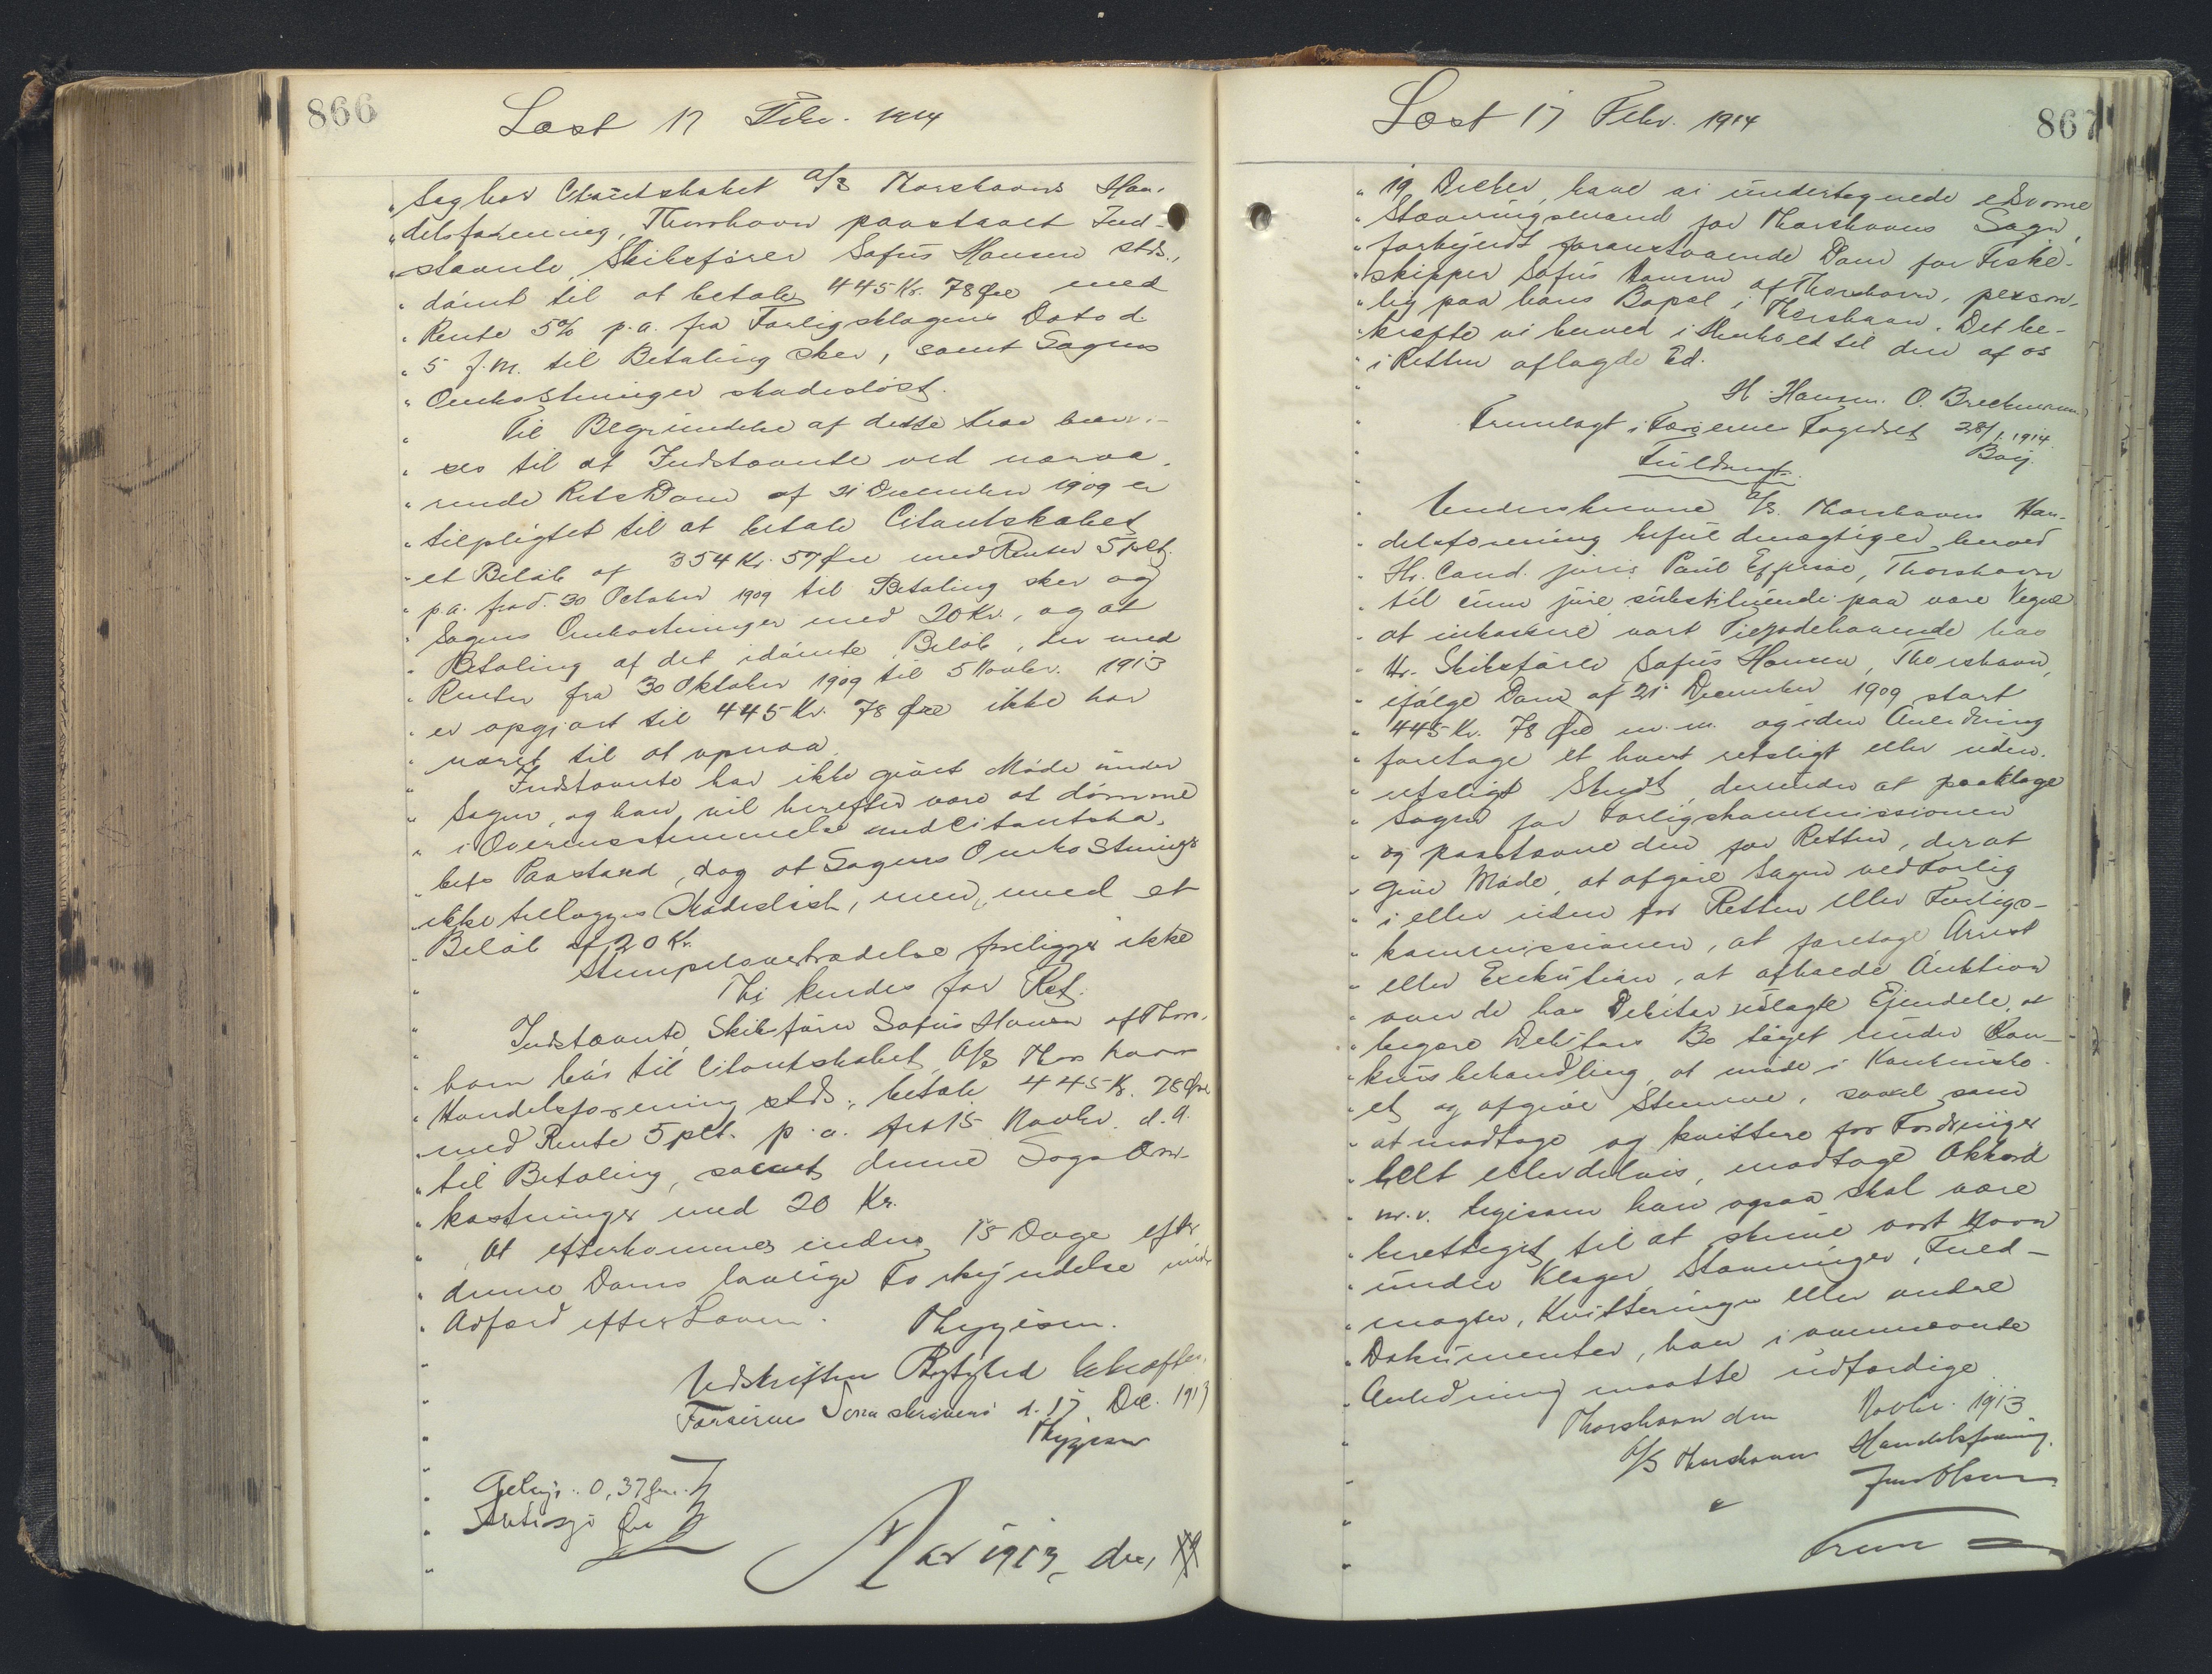 866
Læst 17 Febr. 1914
Sag har Citantskabet A/S Thorshavns Han-
delsforening, Thorshavn paastaaet Ind-
stævnte, Skibsfører Sofus Hansen stds.,
dømt til at betale 445 Kr. 78 Øre med
Rente 5% p.a. fra Forligsklagens Dato d.
5 f.M. til Betaling sker, samt Sagens
Omkostninger skadesløst.
Til Begrundelse af dette Krav henvi-
ses til at Indstævnte ved nærvæ-
rende Rets Dom af 21 December 1909 er
tilpligtet til at betale Citantskabet
et Beløb af 354 Kr. 57 Øre med Renter 5 pCt.
p.a. fra d. 30 October 1909 til Betaling sker og
Sagens Omkostninger med 20 Kr., og at
Betaling af det idømte Beløb, der med
Renter fra 30 Oktober 1909 til 5 Novbr. 1913
er opgjort til 445 Kr. 78 Øre ikke har
været til at opnaa.
Indstævnte har ikke givet Møde under
Sagen, og han vil herefter være at dømme
i Overensstemmelse med Citantska-
bets Paastand, dog at Sagens Omkostninger
ikke tillægges skadesløst, men med et
Beløb af 20 Kr.
Stempelovertrædelse foreligger ikke
Thi kendes for Ret:
Indstævnte, Skibsfører Sofus Hansen af Thors-
havn bør til Citantskabet A/S Thorshavns
Handelsforening stds., betale 445 Kr. 78 Øre
med Rente 5 pCt. p.a. fra 5 Novbr. d.A.
til Betaling, samt denne Sags Om-
kostninger med 20 Kr.
At efterkommes inden 15 Dage efter
denne Doms lovlige Forkyndelse under
Adfærd efter Loven.
Thygesen.
Udskriftens Rigtighed bekræftes,
Færøernes Sorenskriveri d. 17 Dec. 1913
Thygesen
Gebyr: 0,37 Øre
Aar 1913, den,
867
Læst 17 Febr. 1914
19 Decbr, have vi undertegnede edsvorne
Stævningsmænd for Thorshavns Sogn,
forkyndt foranstaaende Dom for Fiske-
skipper Sofus Hansen af Thorshavn, person-
lig paa hans Bopæl i Thorshavn. Det be-
kræfte vi herved i Henhold til den af os
i Retten aflagde Ed.
H. Hansen. O. Breckmann
Fremlagt i Færøernes Fogedret 28/1 1914.
Fuldmagt.
Underskrevne A/S. Thorshavns Han-
delsforening befuldmægtiger herved
Hr. Cand. juris Paul Effersøe, Thorshavn
til cum jure substituendi paa vore Vegne
at inkassere vort Tilgodehavende hos
Hr. Skibsfører Sofus Hansen, Thorshavn,
ifølge Dom af 21 December 1909 stort
445 Kr. 78 Øre m.m. og i den Anledning
foretage et hvert retsligt eller uden-
retsligt Skridt, derunder at paaklage
Sagen for Forligskommissionen
og paastævne den for Retten, der at
give Møde, at afgøre Sagen ved Forlig
i eller uden for Retten eller Forligs-
kommissionen, at foretage Arrest
eller Exekution, at afholde Auktion
over de hos Debitor udlagte Ejendele, at
begære Debitors Bo taget under Kon-
kursbehandling, at møde i Konkursbo-
et og afgive Stemme, saavel som
at modtage og kvittere for Fordringer
helt eller delvis, modtage Akkord
m.v. ligesom han ogsaa skal være
berettiget til at skrive vort Navn
under Klager, Stævninger, Fuld-
magter, Kvitteringer eller andre
Dokumenter, han i ovennævnte
Anledning maatte udfærdige
Thorshavn den Novbr. 1913
A/S Thorshavns Handelsforening.
Jens Olsen